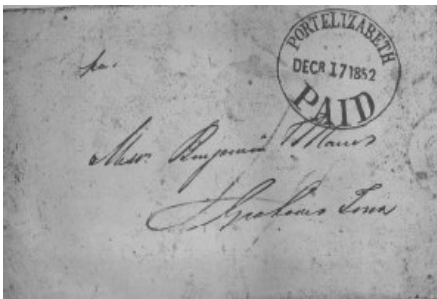 PORT ELIZABETH
DECR 17 1852
PAID
Benjamin
Grahams Town